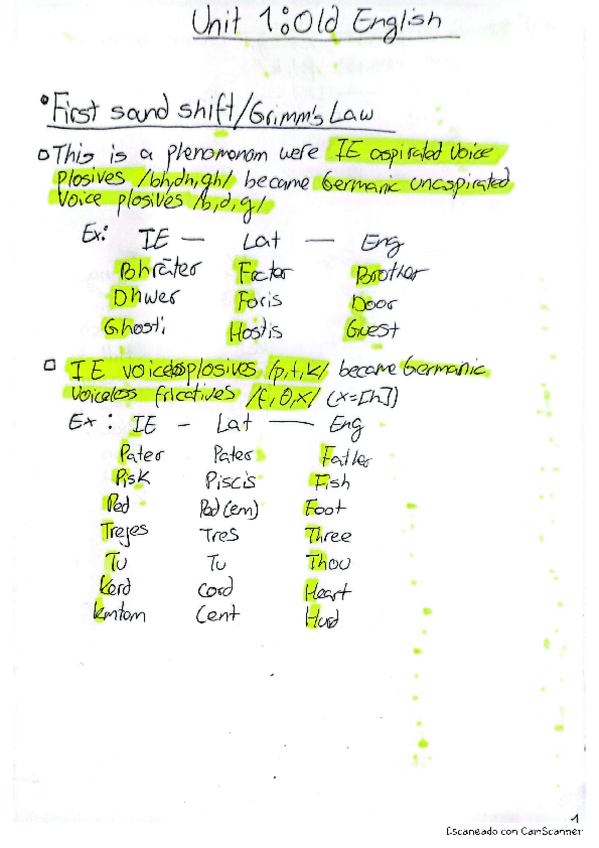 Unit 1: Old English
• First sound shift/Grimm's Law
▫ This is a plenomonom were IE aspirated voice
plosives /bh,dh,gh/ became Germanic unaspirated
voice plosives /b,d,g/
Ex: IE — Lat — Eng
Bhrāter Frater Brother
Dhwer Foris Door
Ghosti Hostis Guest
▫ IE voiceless plosives /p,t,k/ became Germanic
voiceless fricatives /f,θ,x/ (x=[h])
Ex: IE - Lat — Eng
Pater Pater Father
Pisk Piscis Fish
Ped Ped(em) Foot
Trejes Tres Three
Tu Tu Thou
Kerd Cord Heart
kmtom Cent Hund
1
Escaneado con CamScanner